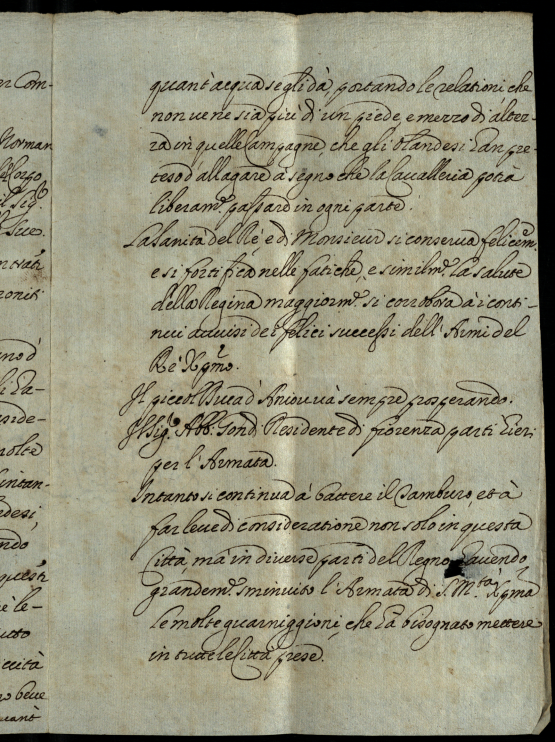 er Com-
Norman
Corpo
il Sig.r
ntrati
ronisi
ano d'
li ha-
side-
molte
lintan-
ndesi,
ndo
questi
è le-
utto
cuità
no beve
uant
quant'acqua se gli dà, portando le relationi che
non ve ne sia più di un piede, e mezzo di altez-
za in quelle Campagne, che gli Olandesi han pre-
teso d'allagare à segno che la Cavalleria potrà
liberam.te passare in ogni parte.
La Sanità del Rè, e di Monsieur si conserva felicem.te
e si fortifica nelle fatiche, e similm.te la salute
della Regina maggiorm.te si corrobora à i conti-
nui avvisi de i felici successi dell'Armi del
Rè Xpmo.
Il piccol Duca d'Aniou và sempre prosperando.
Il Sig.r Abb. Gondi Residente di fiorenza parti hieri
per l'Armata.
Intanto si continua à battere il Tamburo, et à
far leve di consideratione non solo in questa
Città, mà in diverse parti del Regno, havendo
grandem.te sminuito l'Armata di S. M.tà Xpma
le molte guarniggioni, che hà bisognato mettere
in tutte le Città prese.